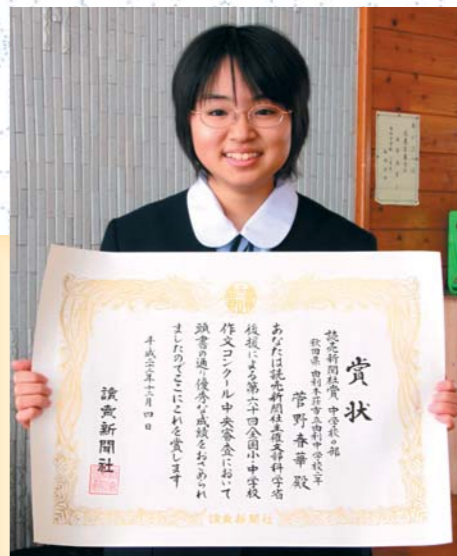 賞状
読売新聞社賞 中学校の部
秋田県 由利本荘市立由利中学校二年
菅野春華 殿
あなたは読売新聞社主催文部科学省
後援による第六十回全国小中学校
作文コンクール中央審査において
頭書の通り優秀な成績をおさめられ
ましたのでここにこれを賞します
平成二十二年十二月四日
讀賣新聞社
讀賣新聞社